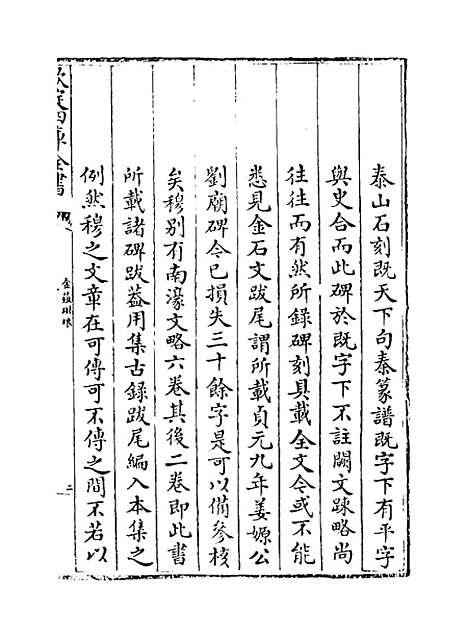 泰山石刻既天下句秦篆譜既字下有平字
與史合而此碑於既字下不註闕文踈略尚
往往而有然所錄碑刻具載全文今或不能
悉見金石文跋尾謂所載貞元九年姜嫄公
劉廟碑今已損失三十餘字是可以備參核
矣穆别有南濠文略六卷其後二卷即此書
所載諸碑跋葢用集古錄跋尾編入本集之
例然穆之文章在可傳可不傳之間不若以
欽定四庫全書
金薤琳琅
二